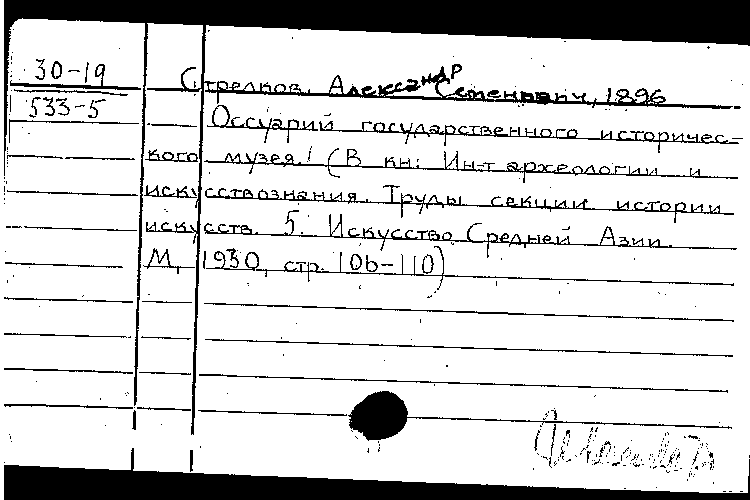 30-19
533-5
Стрелков, Александр Семенович, 1896
Оссуарий государственного историчес-
кого музея. (В кн: Ин-т археологии и
искусствознания. Труды секции истории
искусств. 5. Искусство Средней Азии.
М, 1930, стр. 106-110)